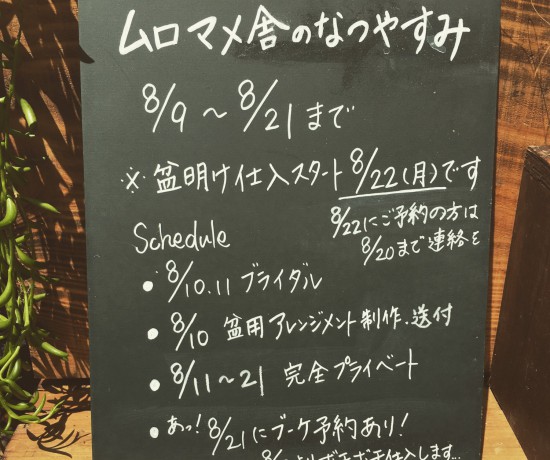 ムロマメ舎のなつやすみ
8/9 〜 8/21 まで
※ 盆明け仕入スタート 8/22(月)です
8/22にご予約の方は
8/20まで連絡を
Schedule
• 8/10.11 ブライダル
• 8/10 盆用アレンジメント制作.送付
• 8/11〜21 完全プライベート
• あっ! 8/21にブーケ予約あり!
仕入します...